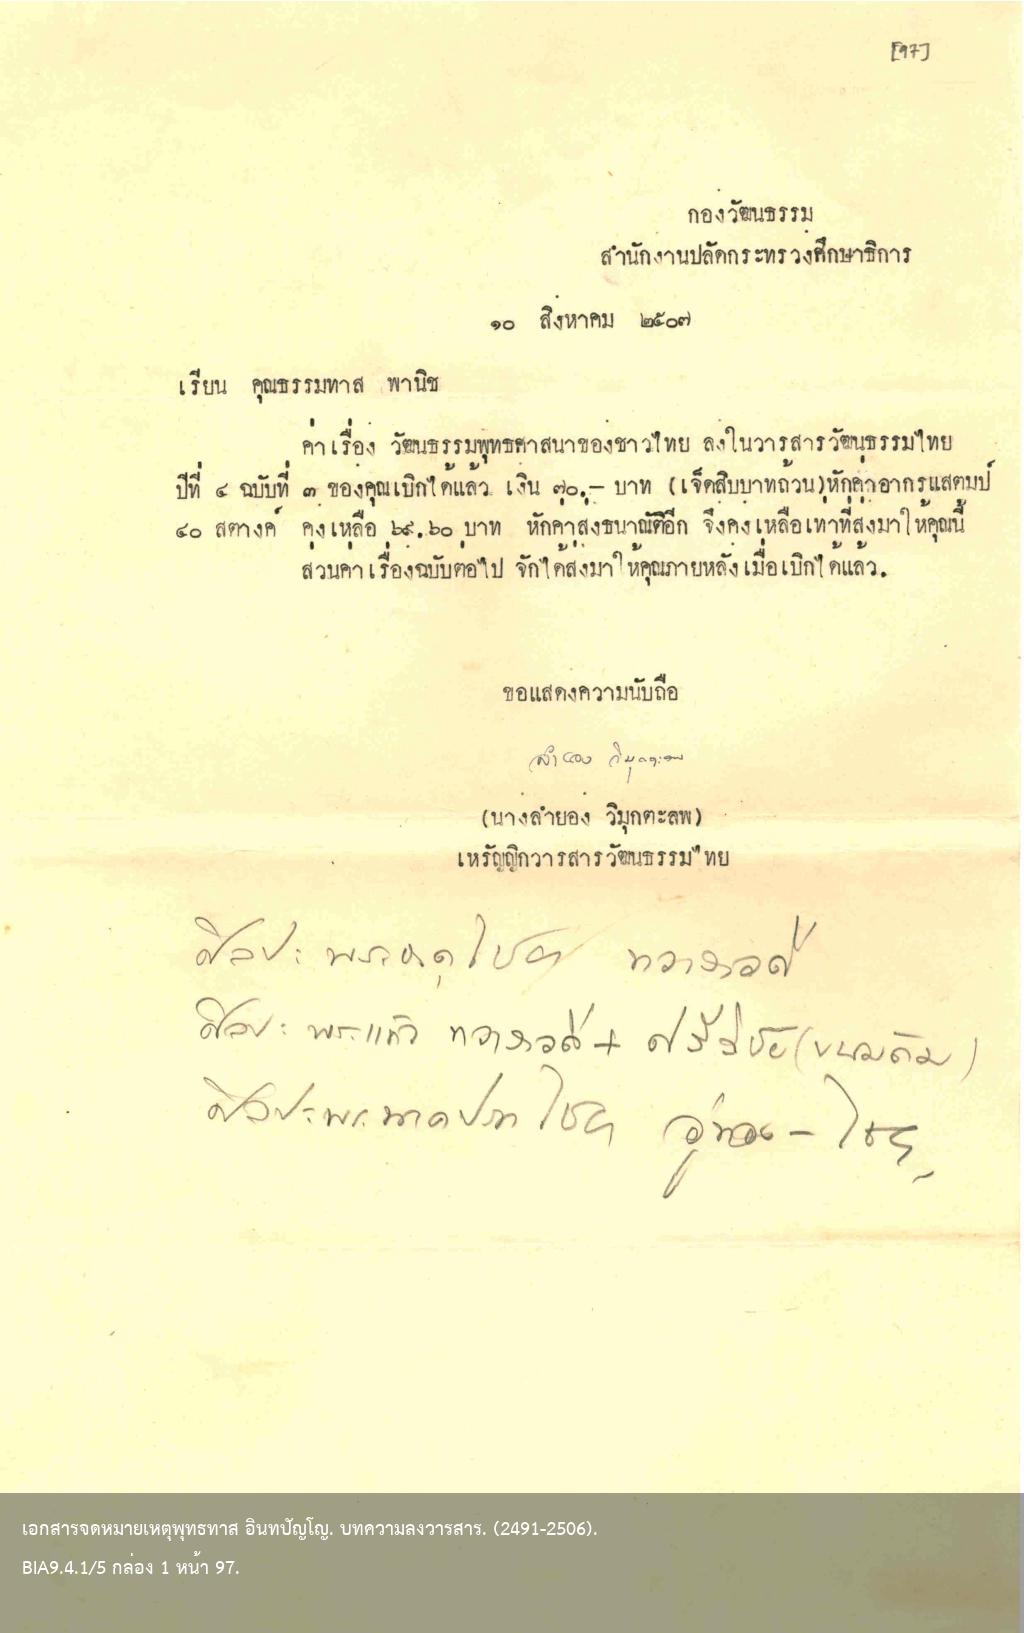 [97]
กองวัฒนธรรม
สำนักงานปลัดกระทรวงศึกษาธิการ
๑๐ สิงหาคม ๒๕๐๗
เรียน คุณธรรมทาส พานิช
ค่าเรื่อง วัฒนธรรมพุทธศาสนาของชาวไทย ลงในวารสารวัฒนธรรมไทย
ปีที่ ๔ ฉบับที่ ๓ ของคุณเบิกได้แล้ว เงิน ๗๐.- บาท (เจ็ดสิบบาทถ้วน)หักค่าอากรแสตมป์
๔๐ สตางค์ คงเหลือ ๖๙.๖๐ บาท หักค่าส่งธนาณัติอีก จึงคงเหลือเท่าที่ส่งมาให้คุณนี้
ส่วนค่าเรื่องฉบับต่อไป จักได้ส่งมาให้คุณภายหลังเมื่อเบิกได้แล้ว.
ขอแสดงความนับถือ
ลำยอง วิมุกตะลพ
(นางลำยอง วิมุกตะลพ)
เหรัญญิกวารสารวัฒนธรรมไทย
ศิลปะพระธาตุไชยา ทวาราวดี
ศิลปะพระแก้ว ทวาราวดี + ศรีวิชัย
ศิลปะพระนาคปรกไชยา อู่ทอง - ไชยา
เอกสารจดหมายเหตุพุทธทาส อินทปัญโญ. บทความลงวารสาร. (2491-2506).
BIA9.4.1/5 กล่อง 1 หน้า 97.